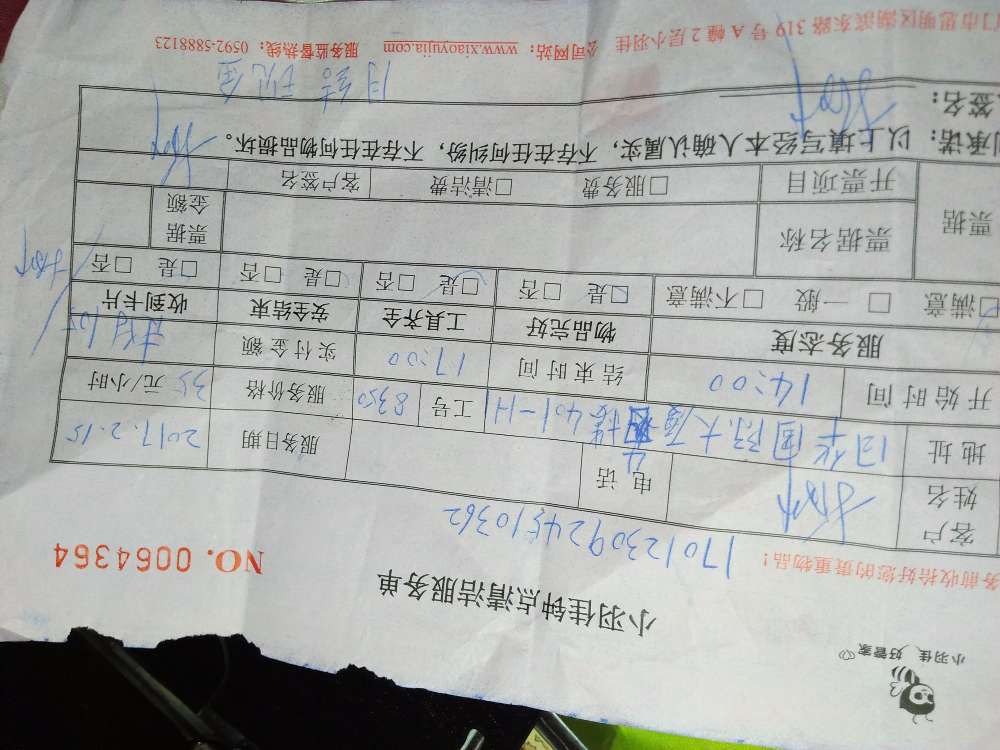 小羽佳 好管家
小羽佳钟点清洁服务单
务前收拾好您的贵重物品!
NO. 0064364
1701230924510362
客户姓名
电话
服务日期 2017.2.15
地址
国际大厦
楼401-H
工号 8350
服务价格 35 元/小时
开始时间 14:00
结束时间 17:00
实付金额
服务态度 物品完好 工具齐全 安全结束 收到卡片
满意 □ 一般 □不满意 □是 □否 □是 □否 □是 □否 □是 □否
票据 票据名称 票据金额
开票项目 □服务费 □清洁费 客户签名
承诺:以上填写经本人确认属实,不存在任何纠纷,不存在任何物品损坏。
签名:
月结 现金
门市思明区湖滨东路 319 号 A 幢 2 层小羽佳 公司网站:www.xiaoyujia.com 服务监督热线:0592-5888123